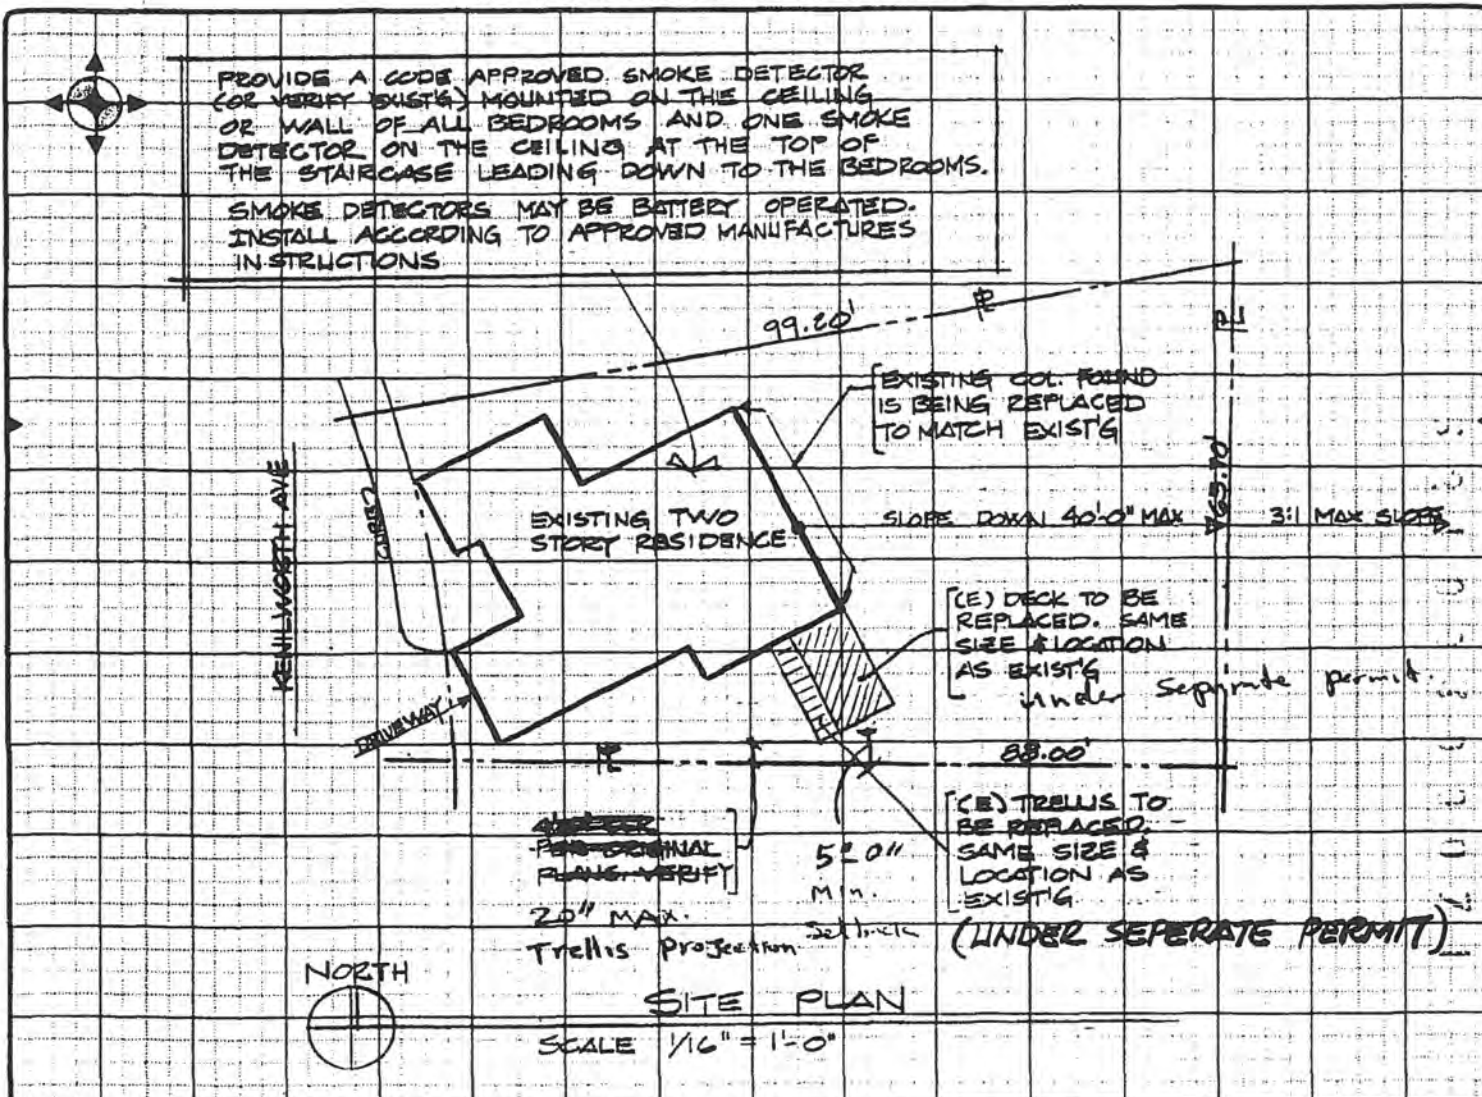 PROVIDE A CODE APPROVED SMOKE DETECTOR
(OR VERIFY EXIST'G) MOUNTED ON THE CEILING
OR WALL OF ALL BEDROOMS AND ONE SMOKE
DETECTOR ON THE CEILING AT THE TOP OF
THE STAIRCASE LEADING DOWN TO THE BEDROOMS.
SMOKE DETECTORS MAY BE BATTERY OPERATED.
INSTALL ACCORDING TO APPROVED MANUFACTURES
INSTRUCTIONS
99.20'
PL
PL
EXISTING COL. FOUND
IS BEING REPLACED
TO MATCH EXIST'G
65.70'
KENILWORTH AVE
CURB
EXISTING TWO
STORY RESIDENCE
SLOPE DOWN 40'-0" MAX
3:1 MAX SLOPE
(E) DECK TO BE
REPLACED. SAME
SIZE & LOCATION
AS EXIST'G
under separate permit.
DRIVEWAY
PL
88.00'
PER ORIGINAL
PLANS. VERIFY
20" MAX.
Trellis Projection
5'-0"
Min.
Setback
(E) TRELLIS TO
BE REPLACED.
SAME SIZE &
LOCATION AS
EXIST'G
(UNDER SEPERATE PERMIT)
NORTH
SITE PLAN
SCALE 1/16" = 1'-0"